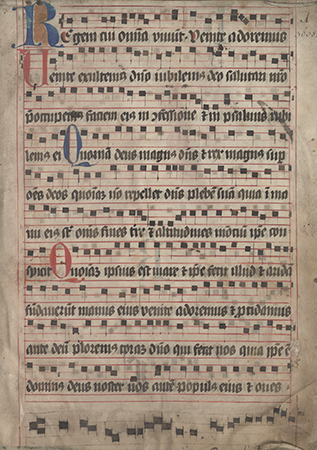 Regem cui omnia vivunt. Venite adoremus
Venite exultemus dno iubilemus deo salutari nro
preocupemus faciem eius in confessione & in psalmis iubi
lemus ei Quoniam deus magnus dns & rex magnus sup
oes deos quoniam no repellet dns plebem suā quia in ma
nu eius st oms fines tre & altitudines montiū ipse con
spicit Quoniam ipsius est mare & ipse fecit illud & arida
fundaverūt manus eius venite adoremus & pcidamus
ante deū ploremus coram dno qui fecit nos quia ipse ē
dominus deus noster nos autē populus eius & oves